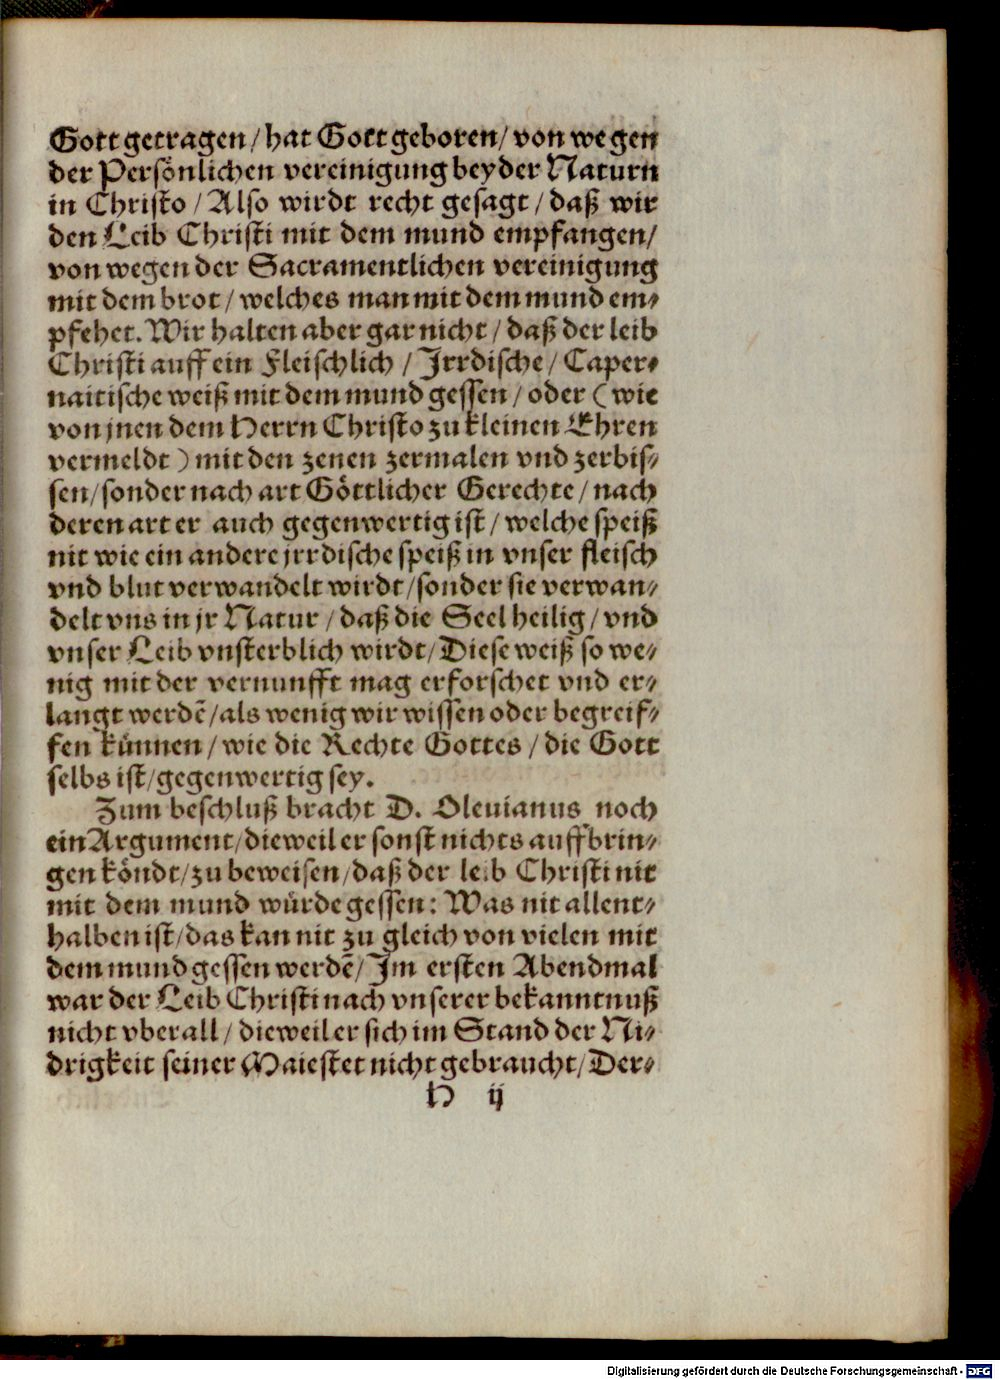 Gott getragen/ hat Gott geboren/ von wegen
der Persönlichen vereinigung beyder Naturn
in Christo / Also wirdt recht gesagt / daß wir
den Leib Christi mit dem mund empfangen/
von wegen der Sacramentlichen vereinigung
mit dem brot / welches man mit dem mund em⸗
pfehet. Wir halten aber gar nicht / daß der leib
Christi auff ein Fleischlich / Jrrdische / Caper⸗
naitische weiß mit dem mund gessen / oder ( wie
von jnen dem Herrn Christo zu kleinen Ehren
vermeldt ) mit den zenen zermalen vnd zerbis⸗
sen/ sonder nach art Göttlicher Gerechte / nach
deren art er auch gegenwertig ist / welche speiß
nit wie ein andere jrrdische speiß in vnser fleisch
vnd blut verwandelt wirdt/ sonder sie verwan⸗
delt vns in jr Natur / daß die Seel heilig / vnd
vnser Leib vnsterblich wirdt/ Diese weiß so we⸗
nig mit der vernunfft mag erforschet vnd er⸗
langt werdē / als wenig wir wissen oder begreif⸗
fen künnen / wie die Rechte Gottes / die Gott
selbs ist/ gegenwertig sey.
Zum beschluß bracht D. Oleuianus noch
ein Argument/ dieweil er sonst nichts auffbrin⸗
gen köndt/ zu beweisen/ daß der leib Christi nit
mit dem mund würde gessen: Was nit allent⸗
halben ist/ das kan nit zu gleich von vielen mit
dem mund gessen werdē/ Jm ersten Abendmal
war der Leib Christi nach vnserer bekanntnuß
nicht vberall / dieweil er sich im Stand der Ni⸗
drigkeit seiner Maiestet nicht gebraucht/ Der⸗
H ij
Digitalisierung gefördert durch die Deutsche Forschungsgemeinschaft - DFG